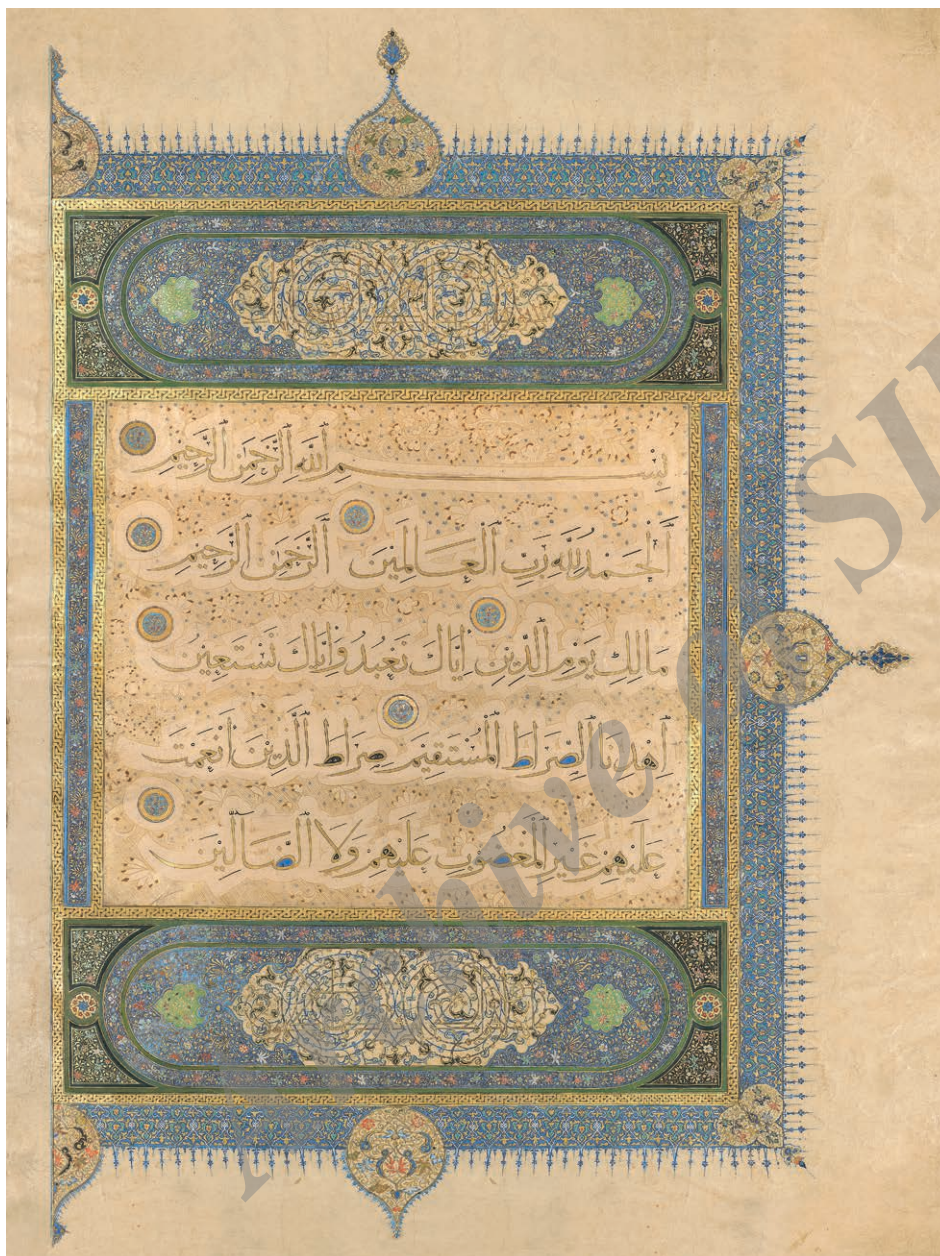 بِسْمِ ٱللَّهِ ٱلرَّحْمَٰنِ ٱلرَّحِيمِ
ٱلْحَمْدُ لِلَّهِ رَبِّ ٱلْعَالَمِينَ ٱلرَّحْمَٰنِ ٱلرَّحِيمِ
مَالِكِ يَوْمِ ٱلدِّينِ إِيَّاكَ نَعْبُدُ وَإِيَّاكَ نَسْتَعِينُ
ٱهْدِنَا ٱلصِّرَاطَ ٱلْمُسْتَقِيمَ صِرَاطَ ٱلَّذِينَ أَنْعَمْتَ
عَلَيْهِمْ غَيْرِ ٱلْمَغْضُوبِ عَلَيْهِمْ وَلَا ٱلضَّالِّينَ